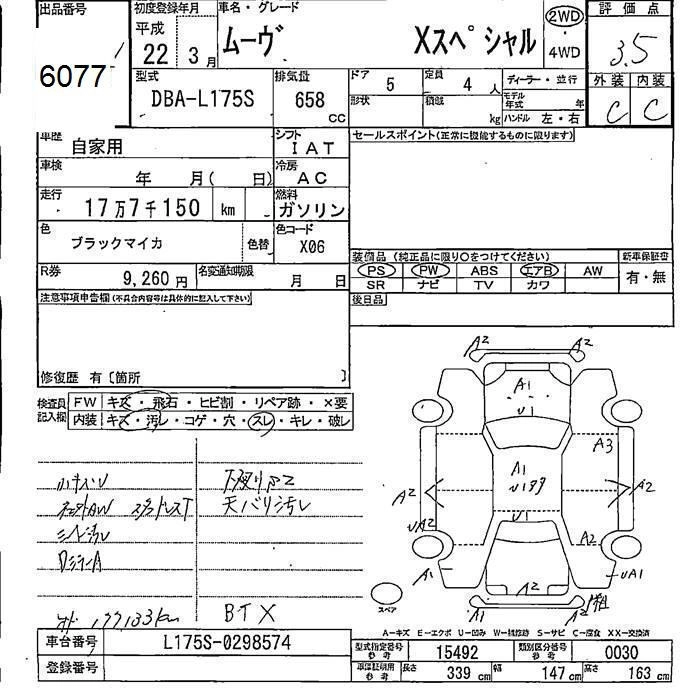 出品番号
6077
初度登録年月
平成
22 3月
車名・グレード
ムーヴ Xスペシャル
2WD
・
4WD
評価点
3.5
外装 内装
C C
型式
DBA-L175S
排気量
658 CC
ドア 5
定員 4 人
ディーラー・並行
形状
積載 kg
モデル年式 年
ハンドル 左・右
車歴
自家用
シフト
IAT
セールスポイント(正常に機能するものに限ります)
車検
年 月( 日)
冷房
AC
走行
17万7千150 km
燃料
ガソリン
色
ブラックマイカ
色替
色コード
X06
装備品 (純正品に限り○をつけてください)
新車保証書
PS PW ABS エアB AW
有・無
SR ナビ TV カワ
R券
9,260円
名変通知期限
月 日
後日品
注意事項申告欄(不具合内容等は具体的に記入して下さい)
修復歴 有〔箇所 〕
検査員記入欄
FW キズ・飛石・ヒビ割・リペア跡・×要
内装 キズ・汚レ・コゲ・穴・スレ・キレ・破レ
小キズU
天バリ汚レ
シート汚レ
DミラーA
177133km
BTX
A2 A2
A1
U1
A3
A1
A2 A2
U1
UA2 A2
A1 UA1
A2
A1 A2
スペア
A-キズ E-エクボ U-凹み W-補修跡 S-サビ C-腐食 XX-交換済
車台番号
L175S-0298574
登録番号
型式指定番号 参考 15492
類別区分番号 参考 0030
車庫証明用 参考 長さ 339 cm 幅 147 cm 高さ 163 cm